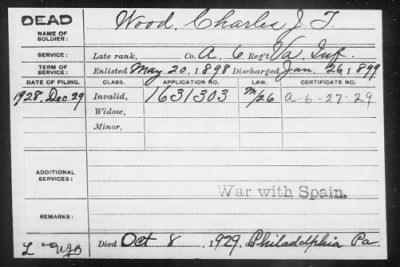 DEAD Wood, Charles J. T.
NAME OF SOLDIER:
SERVICE: Late rank, Co. A, 6 Reg't Va. Inf.
TERM OF SERVICE: Enlisted May 20, 1898 Discharged Jan. 26, 1899
DATE OF FILING. CLASS. APPLICATION NO. LAW. CERTIFICATE NO.
1928. Dec. 29 Invalid, 1631303 A-6-27-29
Widow,
Minor,
ADDITIONAL SERVICES:
War with Spain.
REMARKS:
Died Oct 8, 1929, Philadelphia Pa.